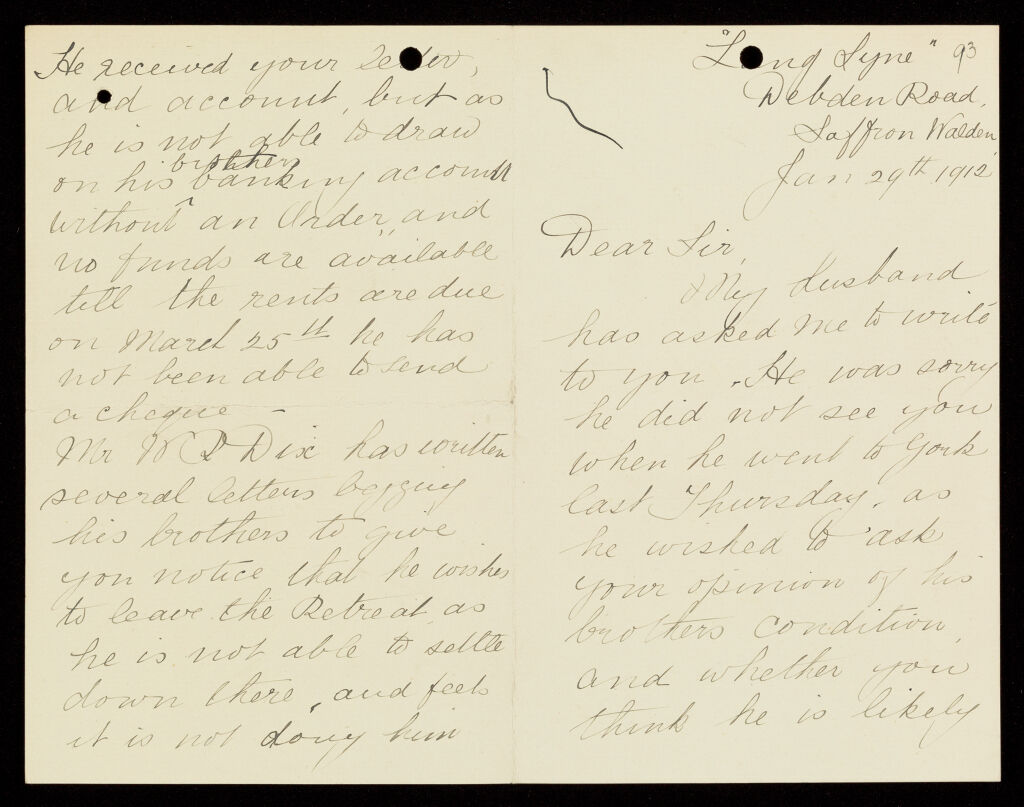 "Long Syne" 93
Debden Road,
Saffron Walden,
Jan 29th 1912
Dear Sir,
My Husband
has asked me to write
to you. He was sorry
he did not see you
when he went to York
last Thursday, as
he wished to ask
your opinion of his
brothers condition,
and whether you
think he is likely
He received your letter,
and account, but as
he is not able to draw
on his brothers banking account
without an Order, and
no funds are available
till the rents are due
on March 25th he has
not been able to send
a cheque -
Mr W P Dix has written
several letters begging
his brothers to give
you notice that he wishes
to leave the Retreat, as
he is not able to settle
down there, and feels
it is not doing him